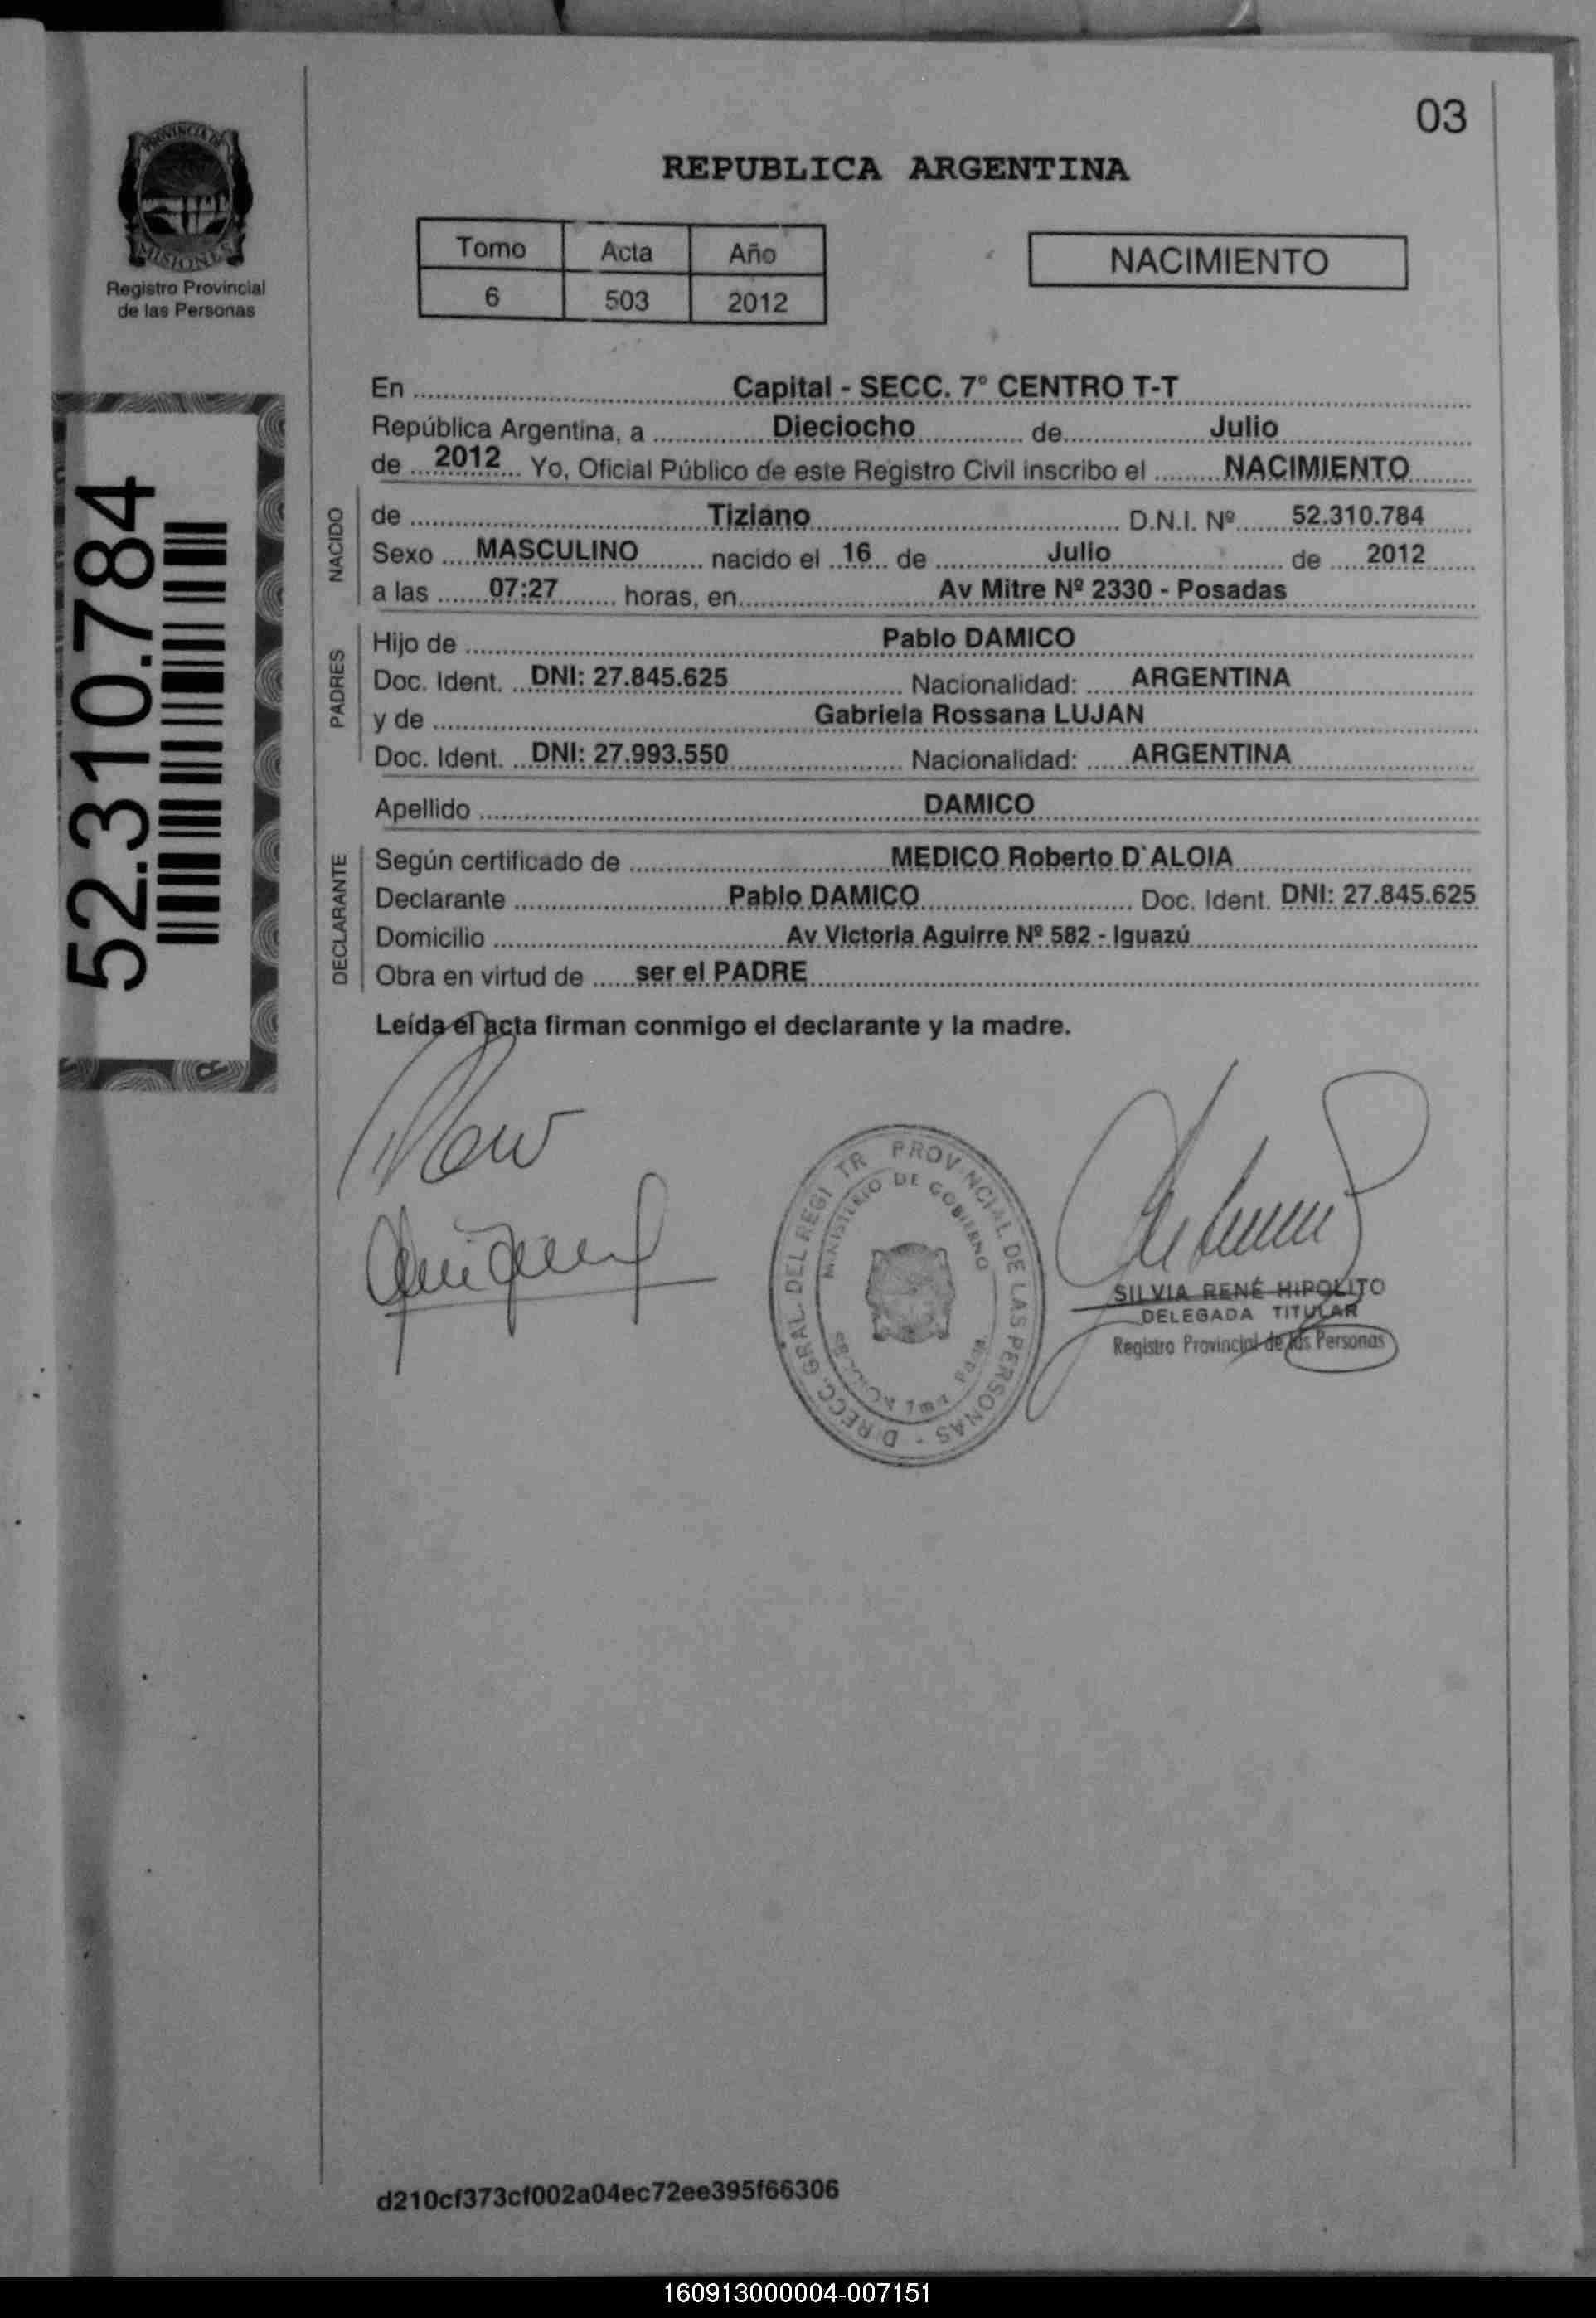 03
PROVINCIA DE
MISIONES
Registro Provincial
de las Personas
REPUBLICA ARGENTINA
Tomo Acta Año
6 503 2012
NACIMIENTO
52.310.784
En Capital - SECC. 7º CENTRO T-T
República Argentina, a Dieciocho de Julio
de 2012 Yo, Oficial Público de este Registro Civil inscribo el NACIMIENTO
NACIDO
de Tiziano D.N.I. Nº 52.310.784
Sexo MASCULINO nacido el 16 de Julio de 2012
a las 07:27 horas, en Av Mitre Nº 2330 - Posadas
PADRES
Hijo de Pablo DAMICO
Doc. Ident. DNI: 27.845.625 Nacionalidad: ARGENTINA
y de Gabriela Rossana LUJAN
Doc. Ident. DNI: 27.993.550 Nacionalidad: ARGENTINA
Apellido DAMICO
DECLARANTE
Según certificado de MEDICO Roberto D`ALOIA
Declarante Pablo DAMICO Doc. Ident. DNI: 27.845.625
Domicilio Av Victoria Aguirre Nº 582 - Iguazú
Obra en virtud de ser el PADRE
Leída el acta firman conmigo el declarante y la madre.
DIRECC. GRAL. DEL REGI TR PROVINCIAL DE LAS PERSONAS -
MINISTERIO DE GOBIERNO
SILVIA RENÉ HIPOLITO
DELEGADA TITULAR
Registro Provincial de las Personas
d210cf373cf002a04ec72ee395f66306
160913000004-007151